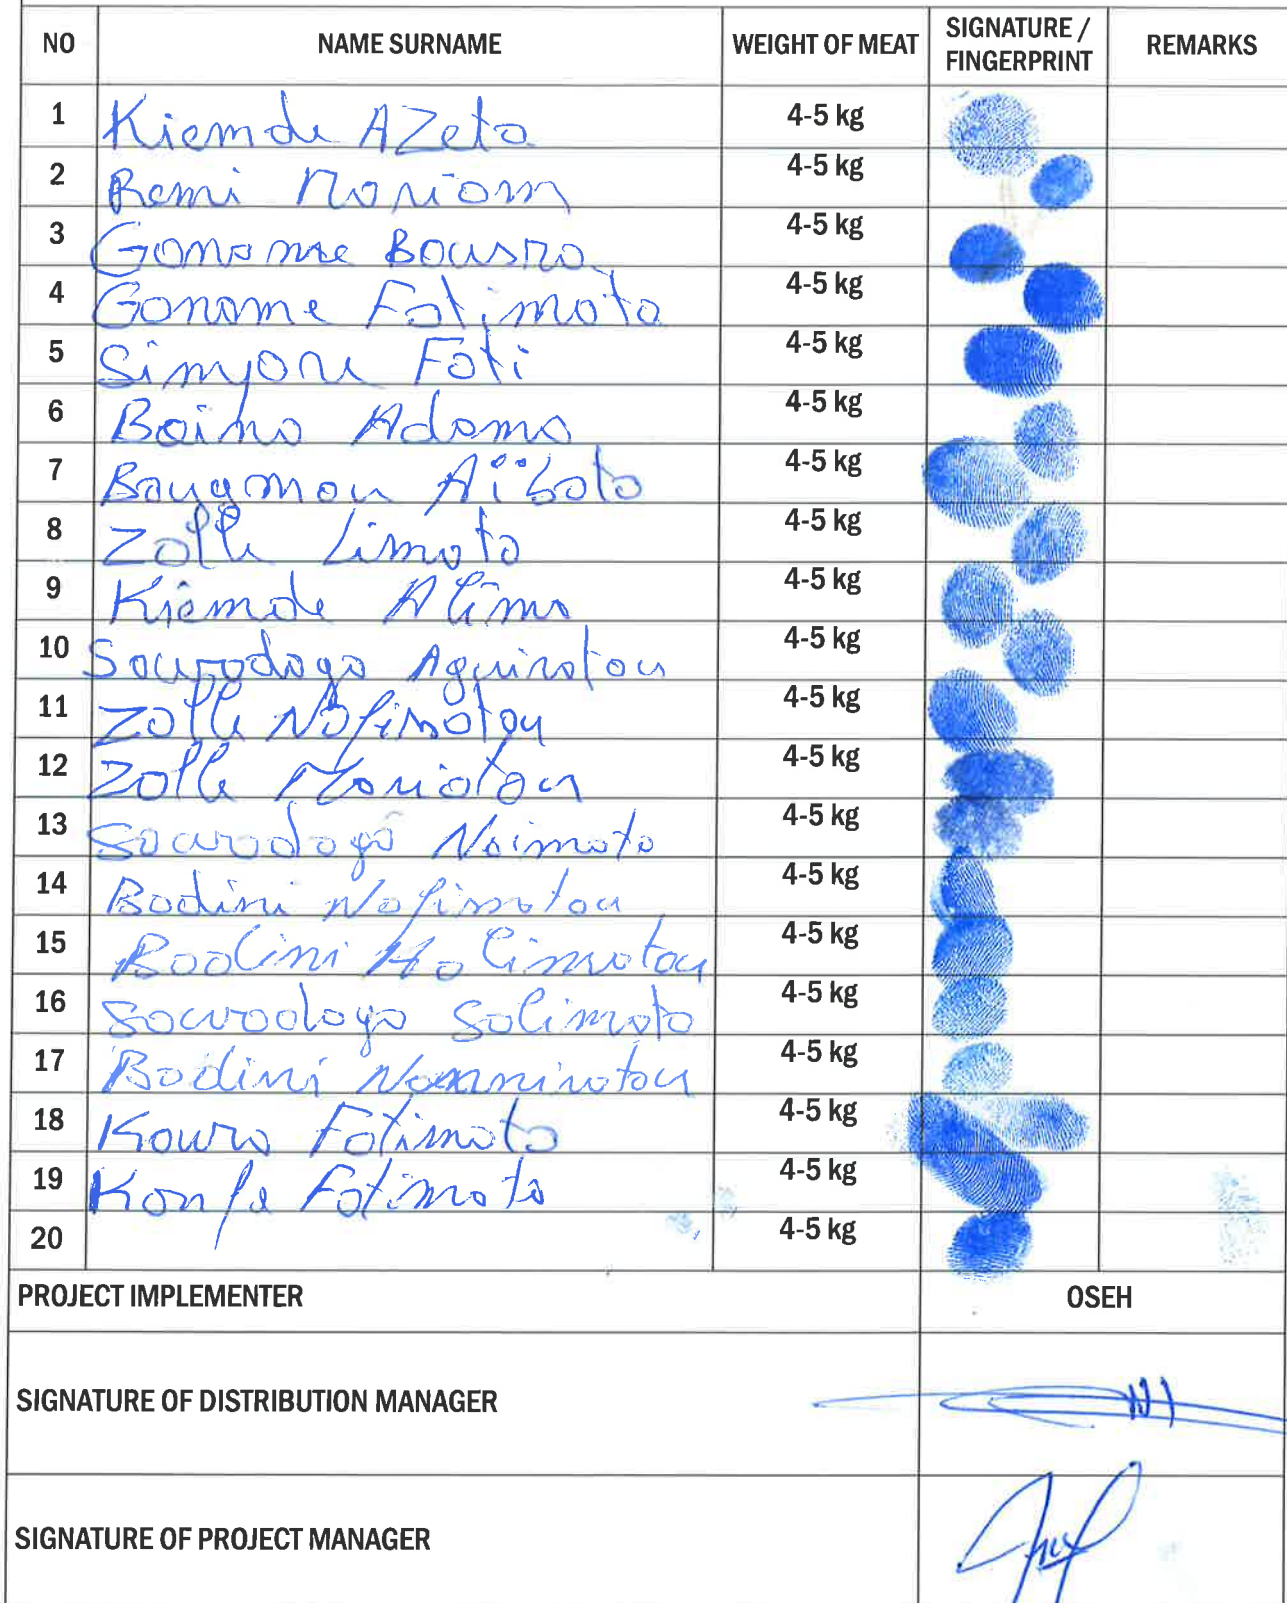 NO NAME SURNAME WEIGHT OF MEAT SIGNATURE / FINGERPRINT REMARKS
1 Kiemde AZeta 4-5 kg
2 Remi Mariam 4-5 kg
3 Ganame Bousra 4-5 kg
4 Ganame Fatimata 4-5 kg
5 Simpore Fati 4-5 kg
6 Boima Adama 4-5 kg
7 Baugmou Aïssata 4-5 kg
8 Zalle Limata 4-5 kg
9 Kiemde Alima 4-5 kg
10 Sawodogo Aguiratou 4-5 kg
11 Zalle Nafissatou 4-5 kg
12 Zalle Mariatou 4-5 kg
13 Sawodogo Naimata 4-5 kg
14 Badini Nafissatou 4-5 kg
15 Badini Halimatou 4-5 kg
16 Sawodogo Salimata 4-5 kg
17 Badini 4-5 kg
18 Koura Fatimata 4-5 kg
19 Konfe Fatimata 4-5 kg
20 4-5 kg
PROJECT IMPLEMENTER OSEH
SIGNATURE OF DISTRIBUTION MANAGER
SIGNATURE OF PROJECT MANAGER